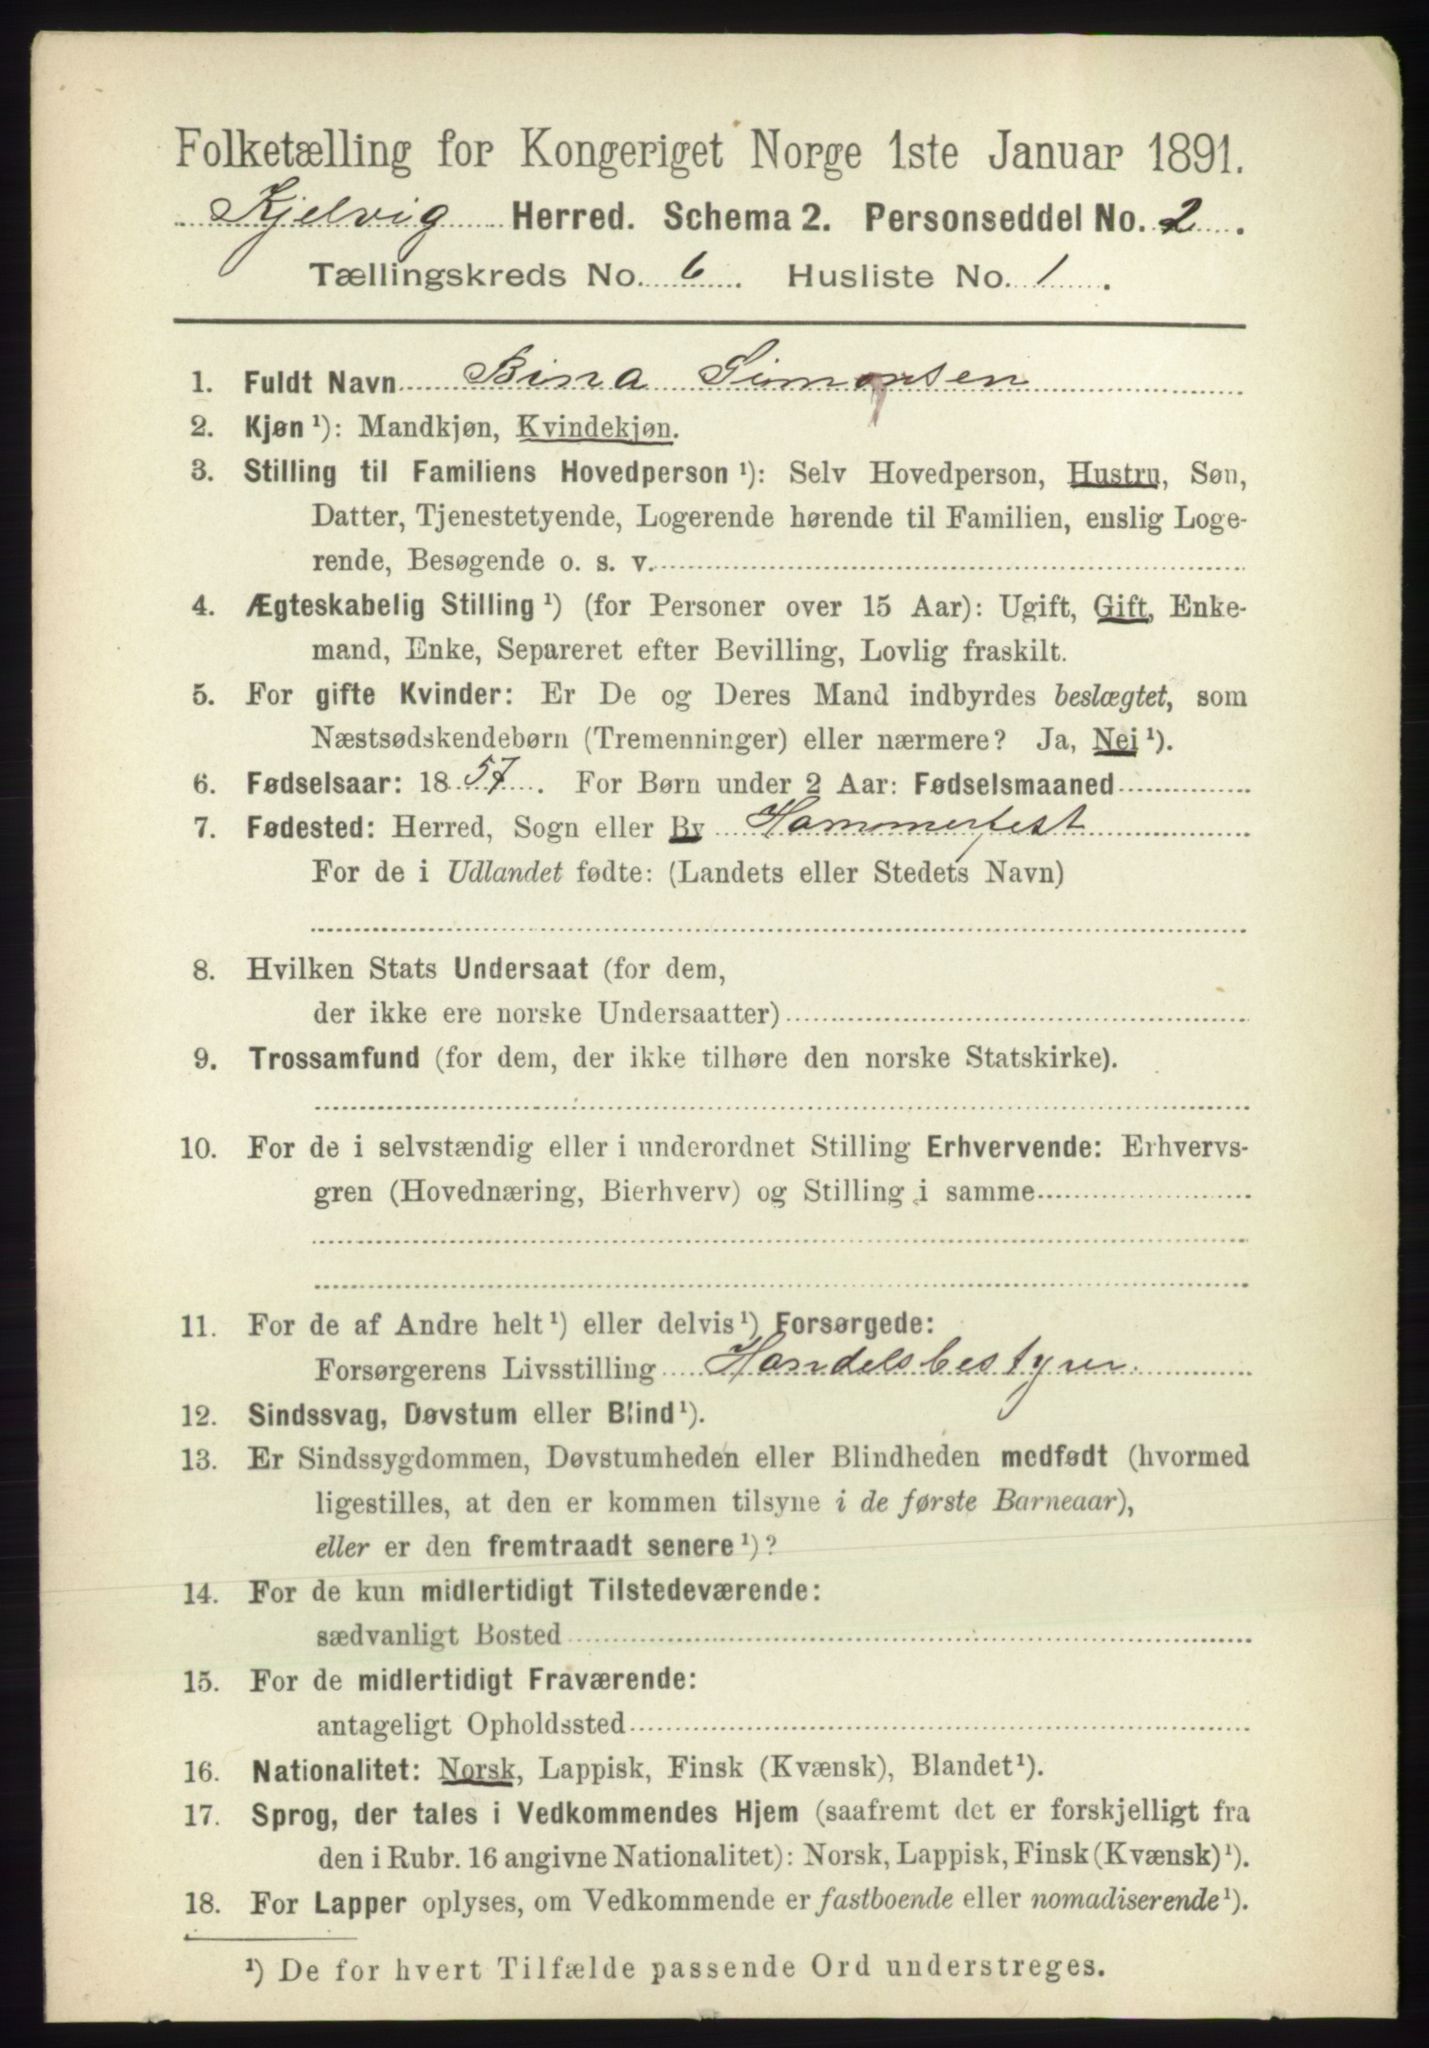 Folketælling for Kongeriget Norge 1ste Januar 1891.
Kjelvig Herred. Schema 2. Personseddel No. 2.
Tællingskreds No. 6. Husliste No. 1.
1. Fuldt Navn Bina Simonsen
2. Kjøn¹): Mandkjøn, Kvindekjøn.
3. Stilling til Familiens Hovedperson¹): Selv Hovedperson, Hustru, Søn,
Datter, Tjenestetyende, Logerende hørende til Familien, enslig Loge-
rende, Besøgende o. s. v.
4. Ægteskabelig Stilling¹) (for Personer over 15 Aar): Ugift, Gift, Enke-
mand, Enke, Separeret efter Bevilling, Lovlig fraskilt.
5. For gifte Kvinder: Er De og Deres Mand indbyrdes beslægtet, som
Næstsødskendebørn (Tremenninger) eller nærmere? Ja, Nei¹).
6. Fødselsaar: 1857. For Børn under 2 Aar: Fødselsmaaned
7. Fødested: Herred, Sogn eller By Hammerfest
For de i Udlandet fødte: (Landets eller Stedets Navn)
8. Hvilken Stats Undersaat (for dem,
der ikke ere norske Undersaatter)
9. Trossamfund (for dem, der ikke tilhøre den norske Statskirke).
10. For de i selvstændig eller i underordnet Stilling Erhvervende: Erhvervs-
gren (Hovednæring, Bierhverv) og Stilling i samme
11. For de af Andre helt¹) eller delvis¹) Forsørgede:
Forsørgerens Livsstilling Handelsbestyrer
12. Sindssvag, Døvstum eller Blind¹).
13. Er Sindssygdommen, Døvstumheden eller Blindheden medfødt (hvormed
ligestilles, at den er kommen tilsyne i de første Barneaar),
eller er den fremtraadt senere¹)?
14. For de kun midlertidigt Tilstedeværende:
sædvanligt Bosted
15. For de midlertidigt Fraværende:
antageligt Opholdssted
16. Nationalitet: Norsk, Lappisk, Finsk (Kvænsk), Blandet¹).
17. Sprog, der tales i Vedkommendes Hjem (saafremt det er forskjelligt fra
den i Rubr. 16 angivne Nationalitet): Norsk, Lappisk, Finsk (Kvænsk)¹).
18. For Lapper oplyses, om Vedkommende er fastboende eller nomadiserende¹).
¹) De for hvert Tilfælde passende Ord understreges.